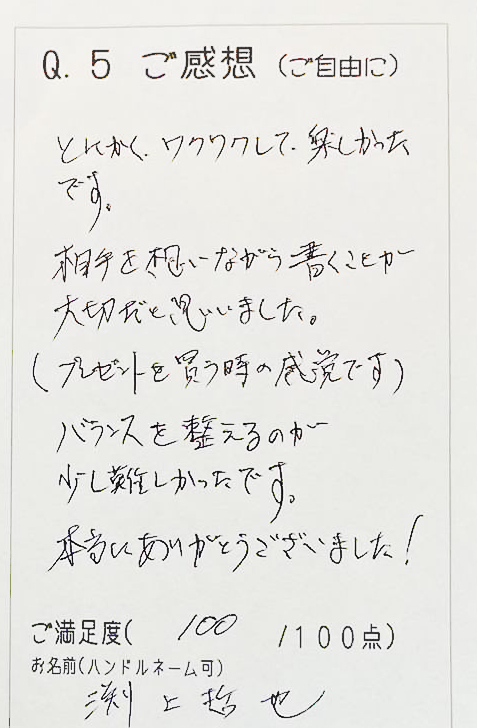 Q.5 ご感想（ご自由に）
とにかく、ワクワクして、楽しかった
です。
相手を想いながら書くことが
大切だと思いました。
(プレゼントを買う時の感覚です)
バランスを整えるのが
少し難しかったです。
本当にありがとうございました!
ご満足度( 100 /100点)
お名前(ハンドルネーム可)
渕上哲也